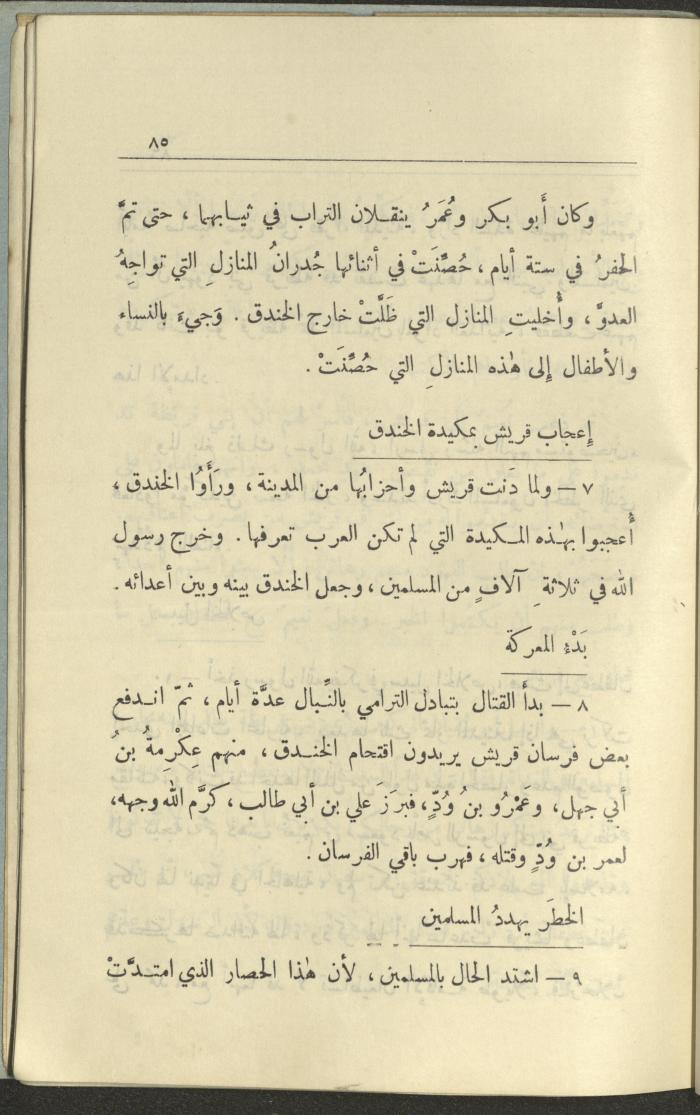 ٨٥
وكان أَبو بكر وعُمَرُ ينقلان التراب في ثيابهما ، حتى تمَّ
الحفرُ في ستة أيام ، حُصِّنَتْ في أثنائها جُدرانُ المنازلِ التي تواجِهُ
العدوَّ ، وأُخليتِ المنازل التي ظَلَّتْ خارج الخندق . وَجيءَ بالنساء
والأطفال إِلى هٰذه المنازلِ التي حُصِّنَتْ .
إِعجاب قريش بمكيدة الخندق
٧ — ولما دَنت قريش وأحزابُها من المدينة ، ورَأَوُا الخندق ،
أُعجبوا بهٰذه المكيدة التي لم تكن العرب تعرفها . وخرج رسول
الله في ثلاثةِ آلافٍ من المسلمين ، وجعل الخندق بينه وبين أعدائه .
بَدْءُ المعركة
٨ — بدأَ القتال بتبادل الترامي بالنِّبال عدَّة أيام ، ثمّ اندفع
بعض فرسان قريش يريدون اقتحام الخندق ، منهم عِكْرِمةُ بنُ
أبي جهل ، وعَمْرُو بنُ وُدٍّ ، فبرَز علي بن أبي طالب ، كرَّم الله وجهه ،
لعمر بن وُدٍّ وقتله ، فهرب باقي الفرسان .
الخطَر يهددُ المسلمين
٩ — اشتد الحال بالمسلمين ، لأن هٰذا الحصار الذي امتدَّتْ